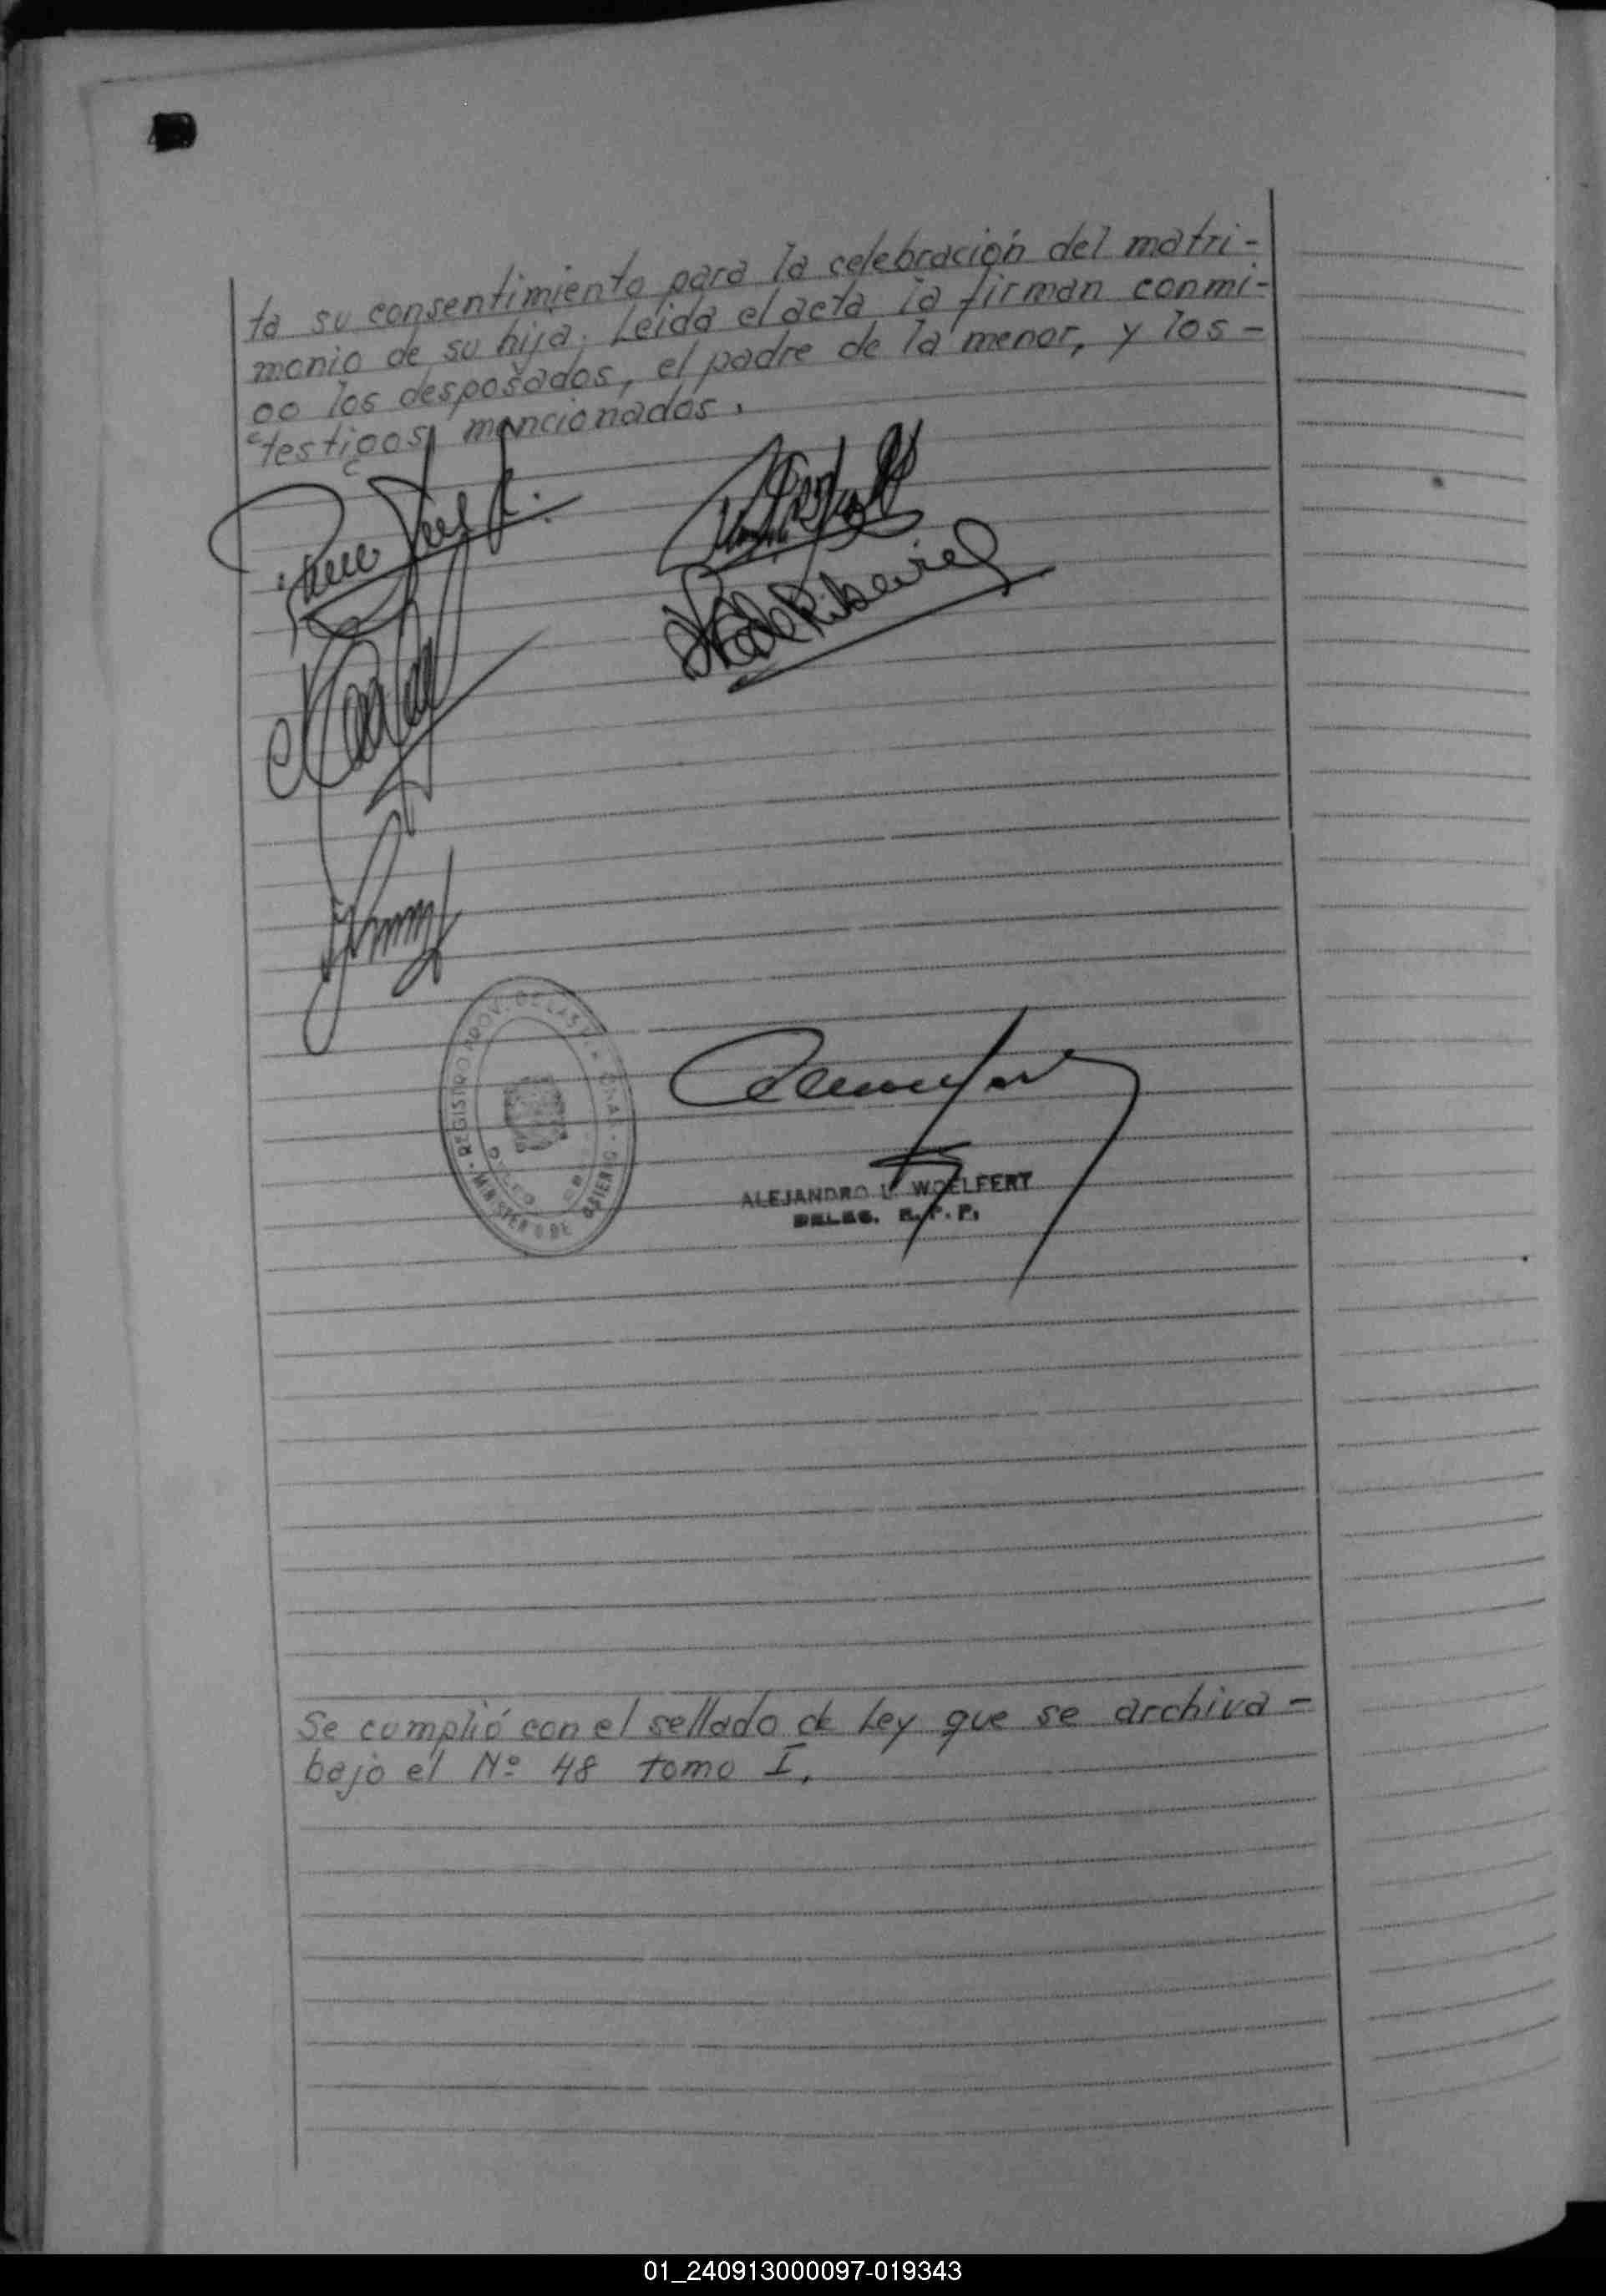 ta su consentimiento para la celebración del matri-
monio de su hija. Leida el acta la firman conmi-
go los desposados, el padre de la menor, y los -
testigos mencionados.
REGISTRO PROV. DE LAS PERSONAS
MINISTERIO DE GOBIERNO
ALEJANDRO L. WOELFERT
DELEG. R. P. P.
Se cumplió con el sellado de Ley que se archiva -
bajo el Nº 48 tomo I.
01_240913000097-019343